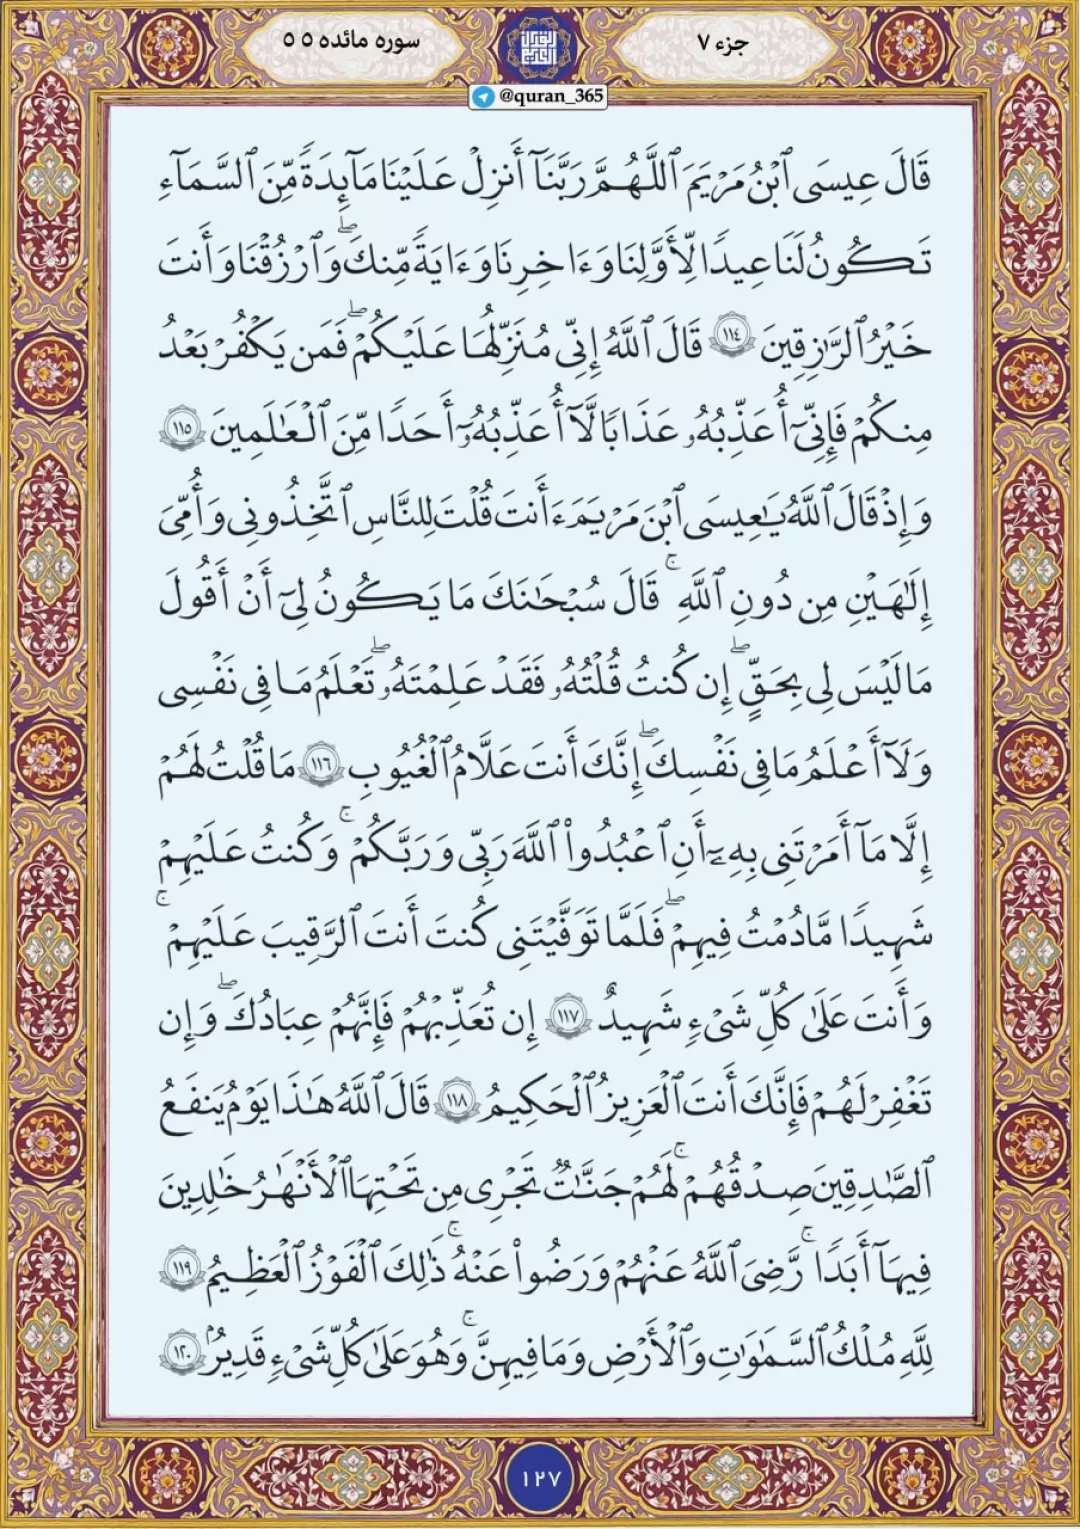 جزء ۷
سوره مائده ۵ ۵
@quran_365
قَالَ عِيسَى ٱبْنُ مَرْيَمَ ٱللَّهُمَّ رَبَّنَآ أَنزِلْ عَلَيْنَا مَآئِدَةً مِّنَ ٱلسَّمَآءِ
تَكُونُ لَنَا عِيدًا لِّأَوَّلِنَا وَءَاخِرِنَا وَءَايَةً مِّنكَ ۖ وَٱرْزُقْنَا وَأَنتَ
خَيْرُ ٱلرَّٰزِقِينَ ١١٤ قَالَ ٱللَّهُ إِنِّى مُنَزِّلُهَا عَلَيْكُمْ ۖ فَمَن يَكْفُرْ بَعْدُ
مِنكُمْ فَإِنِّىٓ أُعَذِّبُهُۥ عَذَابًا لَّآ أُعَذِّبُهُۥٓ أَحَدًا مِّنَ ٱلْعَٰلَمِينَ ١١٥
وَإِذْ قَالَ ٱللَّهُ يَٰعِيسَى ٱبْنَ مَرْيَمَ ءَأَنتَ قُلْتَ لِلنَّاسِ ٱتَّخِذُونِى وَأُمِّىَ
إِلَٰهَيْنِ مِن دُونِ ٱللَّهِ ۚ قَالَ سُبْحَٰنَكَ مَا يَكُونُ لِىٓ أَنْ أَقُولَ
مَا لَيْسَ لِى بِحَقٍّ ۖ إِن كُنتُ قُلْتُهُۥ فَقَدْ عَلِمْتَهُۥ ۖ تَعْلَمُ مَا فِى نَفْسِى
وَلَآ أَعْلَمُ مَا فِى نَفْسِكَ ۖ إِنَّكَ أَنتَ عَلَّٰمُ ٱلْغُيُوبِ ١١٦ مَا قُلْتُ لَهُمْ
إِلَّا مَآ أَمَرْتَنِى بِهِۦٓ أَنِ ٱعْبُدُوا۟ ٱللَّهَ رَبِّى وَرَبَّكُمْ ۚ وَكُنتُ عَلَيْهِمْ
شَهِيدًا مَّا دُمْتُ فِيهِمْ ۖ فَلَمَّا تَوَفَّيْتَنِى كُنتَ أَنتَ ٱلرَّقِيبَ عَلَيْهِمْ ۚ
وَأَنتَ عَلَىٰ كُلِّ شَىْءٍ شَهِيدٌ ١١٧ إِن تُعَذِّبْهُمْ فَإِنَّهُمْ عِبَادُكَ ۖ وَإِن
تَغْفِرْ لَهُمْ فَإِنَّكَ أَنتَ ٱلْعَزِيزُ ٱلْحَكِيمُ ١١٨ قَالَ ٱللَّهُ هَٰذَا يَوْمُ يَنفَعُ
ٱلصَّٰدِقِينَ صِدْقُهُمْ ۚ لَهُمْ جَنَّٰتٌ تَجْرِى مِن تَحْتِهَا ٱلْأَنْهَٰرُ خَٰلِدِينَ
فِيهَآ أَبَدًا ۚ رَّضِىَ ٱللَّهُ عَنْهُمْ وَرَضُوا۟ عَنْهُ ۚ ذَٰلِكَ ٱلْفَوْزُ ٱلْعَظِيمُ ١١٩
لِلَّهِ مُلْكُ ٱلسَّمَٰوَٰتِ وَٱلْأَرْضِ وَمَا فِيهِنَّ ۚ وَهُوَ عَلَىٰ كُلِّ شَىْءٍ قَدِيرٌۢ ١٢٠
١٢٧